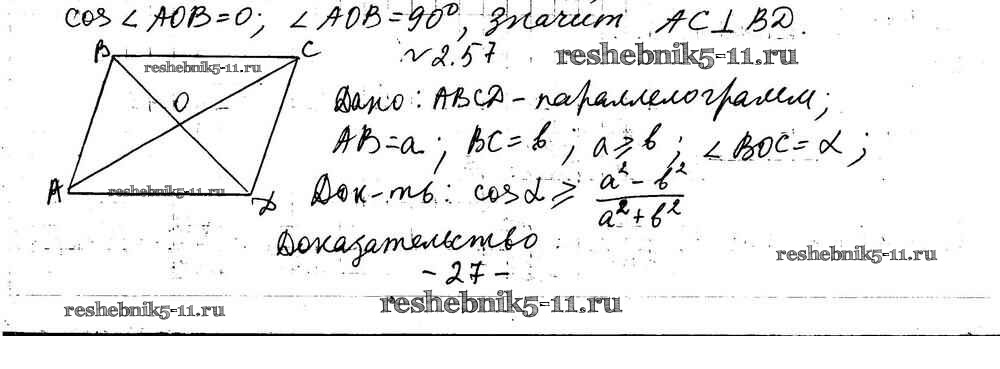 cos∠AOB=0; ∠AOB=90°, значит AC⊥BD.
B C
N2.57 reshebnik5-11.ru
reshebnik5-11.ru
O
Дано: ABCD-параллелограмм;
AB=a; BC=b; a≥b; ∠BOC=α;
A D
reshebnik5-11.ru
Док-ть: cosα ≥ (a²-b²)/(a²+b²)
Доказательство:
reshebnik5-11.ru
-27-
reshebnik5-11.ru reshebnik5-11.ru